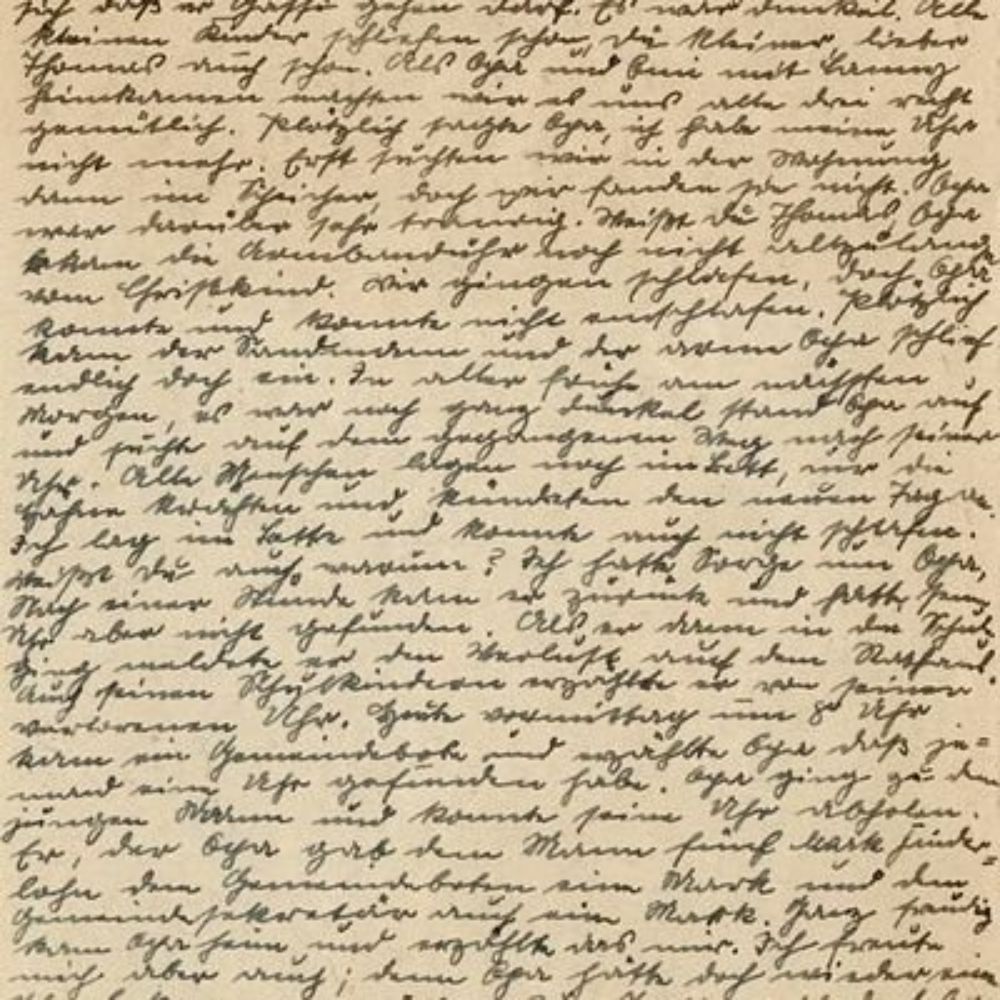 sich daß er Gassi gehen darf. Es war dunkel. Alle
kleinen Kinder schliefen schon, du kleiner, lieber
Thomas auch schon. Als Opa und Omi mit
heimkamen machten wir es uns alle drei recht
gemütlich. Plötzlich sagte Opa, ich habe meine Uhr
nicht mehr. Erst suchten wir in der Wohnung
dann im Speicher, doch wir fanden sie nicht. Opa
war darüber sehr traurig. Weißt du Thomas, Opa
bekam die Armbanduhr noch nicht allzulang
vom Christkind. Wir gingen schlafen, doch Opa
konnte und konnte nicht einschlafen. Plötzlich
kam der Sandmann und der arme Opa schlief
endlich doch ein. In aller frühe am nächsten
Morgen, es war noch ganz dunkel stand Opa auf
und suchte auf dem gegangenen Weg nach seiner
Uhr. Alle Menschen lagen noch im Bett, nur die
Hähne krächten und kündeten den neuen Tag an.
Ich lag im Bette und konnte auch nicht schlafen.
Weißt du auch warum? Ich hatte Sorge um Opa,
Nach einer Stunde kam er zurück und hatte seine
Uhr aber nicht gefunden. Als er dann in die Schule
ging meldete er den Verlust auf dem Rathaus.
Auch seinen Schulkindern erzählte er von seiner
verlorenen Uhr. Heute vormittag um 8 Uhr
kam ein Gemeindebote und erzählte Opa daß je=
mand eine Uhr gefunden habe. Opa ging zu dem
jungen Mann und konnte seine Uhr abholen.
Er, der Opa gab dem Mann fünf Mark Finder=
lohn dem Gemeindeboten eine Mark und dem
Gemeindesekretär auch eine Mark. Ganz freudig
kam Opa heim und erzählte das mir. Ich freute
mich aber auch; denn Opa hatte doch wieder eine